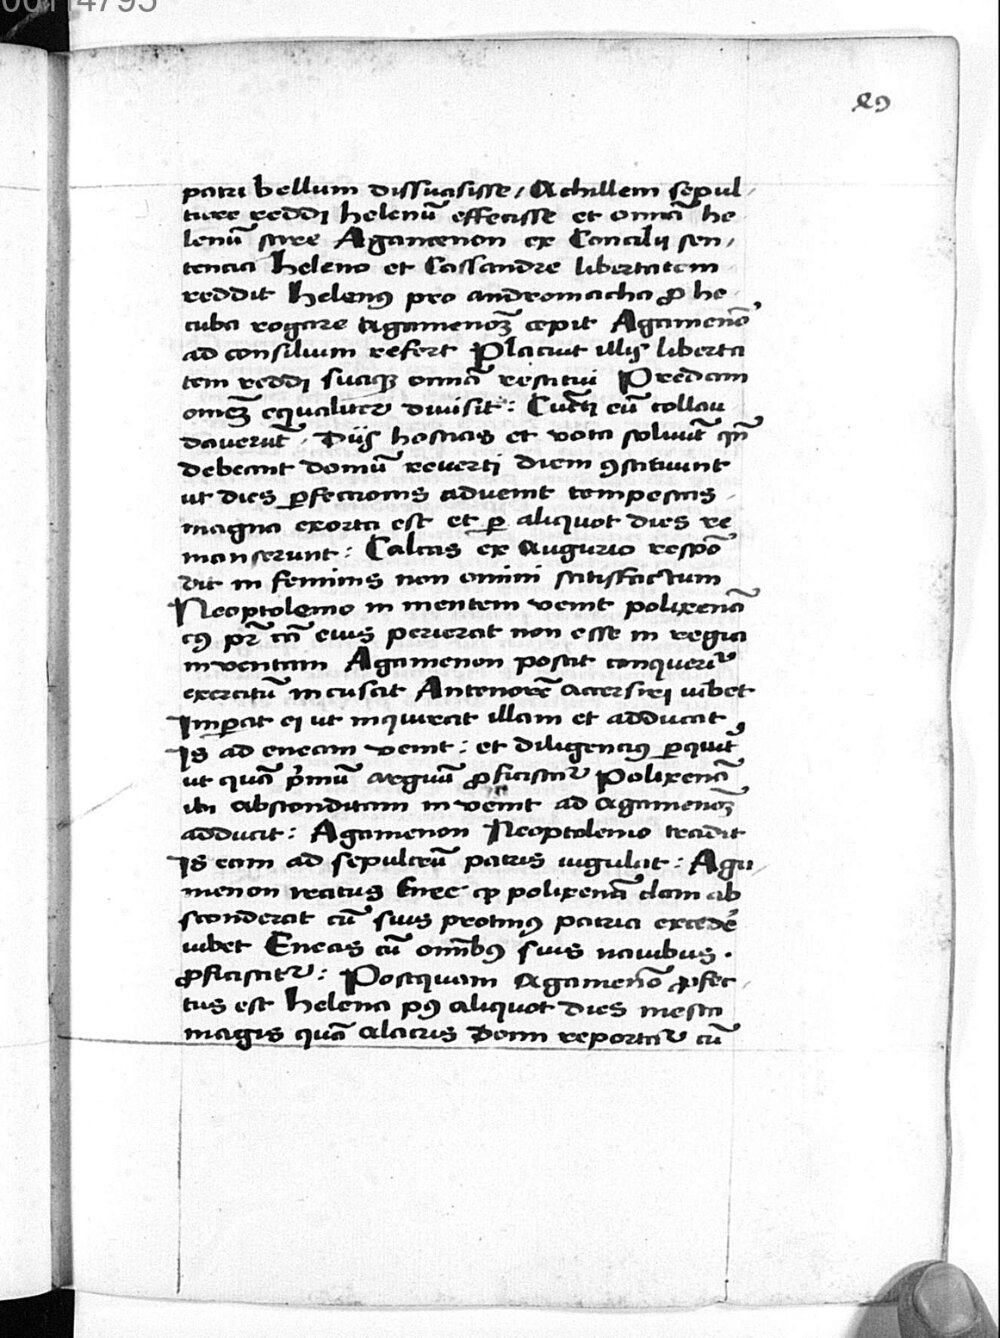 00114795
89
patri bellum dissuasisse / Achillem sepul /
ture reddi helenū effecisse et omnia he
lenū scire Agamenon ex Concilii sen /
tencia Heleno et Cassandre libertatem
reddit Helenꝰ pro andromacha ꝓ he /
cuba rogare agamenoꝫ cepit Agamenō
ad consilium refert Placuit illis liberta
tem reddi suaqꝫ omnia restitui Predam
omeꝫ equaliter divisit : Cūcti eū collau
daverūt / Diis hostias et vota solvūt qn̄
debeant domū reverti diem ꝯstituunt
ut dies ꝑfectionis advenit tempestas /
magna exorta est et ꝑ aliquot dies re
manserunt : Calcas ex Augurio respō
dit in feminis non omini satisfactum
Neoptolemo in mentem venit polixenā
cꝰ pr̄ cā eius perierat non esse in regia
inventam Agamenon poscit conqueriᷣ
exercitū incusat Antenorē accersiri iubet
Imꝑat ei ut inquirat illam et adducat
Is ad eneam venit : et diligenciꝰ ꝑquit᷒
ut quā pͥmū arguū ꝓficiscatᷣ Polixenā
ibi absconditam invenit ad agamenoꝫ
adducit : Agamenon Neoptolemo tradit
Is eam ad sepulcrū patris iugulat : Aga /
menon iratus Enee ꝙ polixenā clam ab
sconderat cū suis protinꝰ patria excedē
iubet Eneas cū omībꝰ suis navibus .
ꝓficiscitᷣ : Postquam agamenō ꝓfec /
tus est Helena pꝰ aliquot dies mesta
magis quā alacris Domi reportaᷣ cū